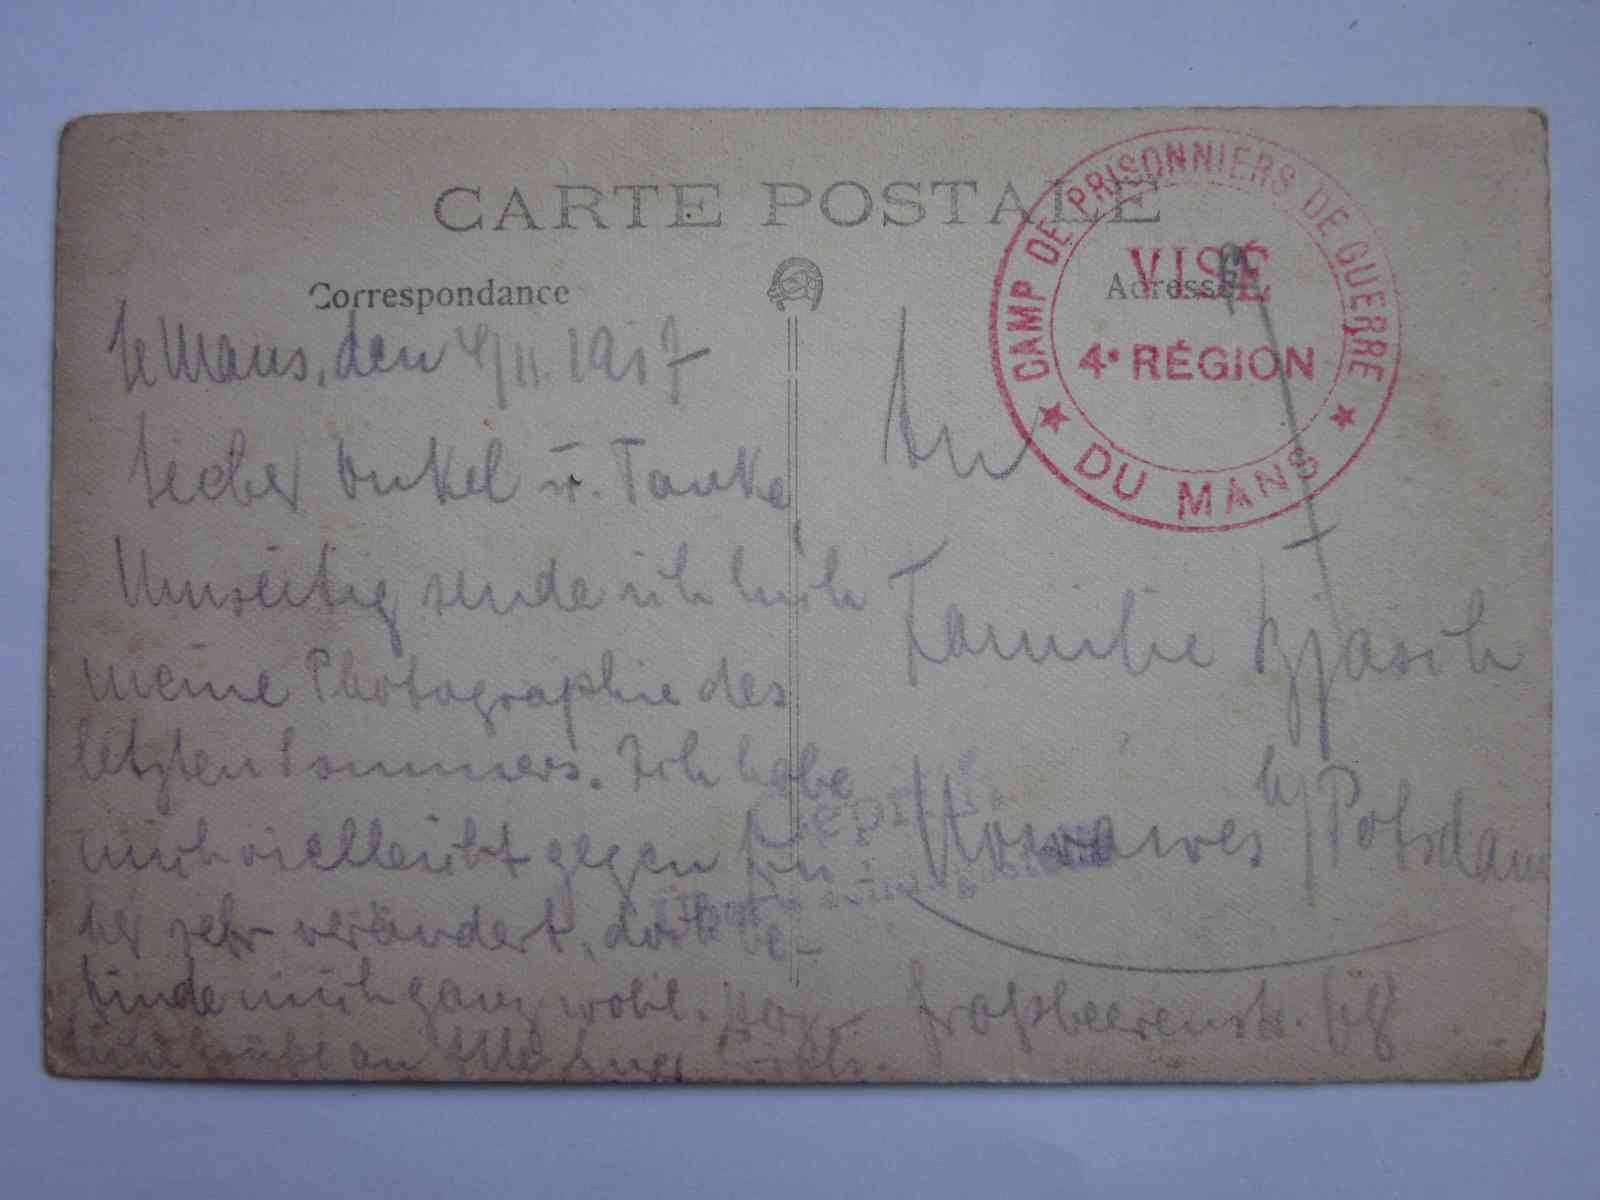 CARTE POSTALE
Correspondance
Adresse
CAMP DE PRISONNIERS DE GUERRE
VISÉ
4e RÉGION
★ DU MANS ★
Le Mans, den 4/11. 1917
Lieber Onkel u. Tante,
Umseitig sende ich Euch
meine Photographie des
letzten Sommers. Ich habe
mich vielleicht gegen frü
her sehr verändert, doch be-
finde mich ganz wohl.
an Alle
An
Familie
Nowawes b/Potsdam
Großbeerenstr.